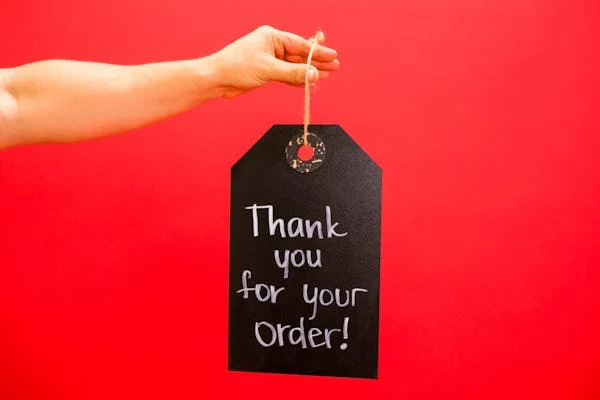 Thank
you
for your
order!